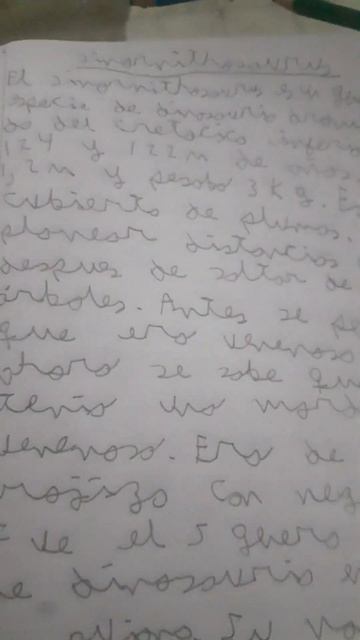 sinornithosaurus
El sinornithosaurus es un
especie de dinosaurio
do del cretacico inferio
124 y 122 m de años
1,2 m y pesaba 3 kg. E
cubierto de plumas.
planear distancias
despues de saltar de
árboles. Antes se p
que era venenoso
ahora se sabe qu
tenia una mord
venenosa. Era de
rojizo con neg
ve el 5
e dinosaurio e